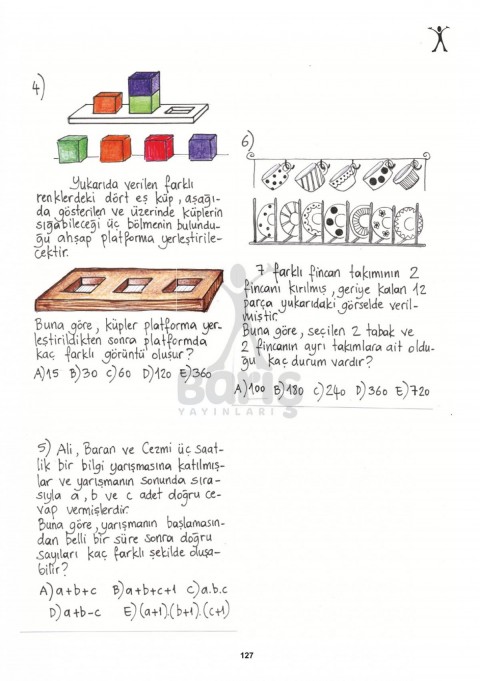 4)
Yukarıda verilen farklı
renklerdeki dört eş küp, aşağı-
da gösterilen ve üzerinde küplerin
sığabileceği üç bölmenin bulundu-
ğu ahşap platforma yerleştirile-
cektir.
Buna göre, küpler platforma yer-
leştirildikten sonra platformda
kaç farklı görüntü oluşur?
A)15 B)30 C)60 D)120 E)360
5) Ali, Baran ve Cezmi üç saat-
lik bir bilgi yarışmasına katılmış-
lar ve yarışmanın sonunda sıra-
sıyla a, b ve c adet doğru ce-
vap vermişlerdir.
Buna göre, yarışmanın başlamasın-
dan belli bir süre sonra doğru
sayıları kaç farklı şekilde oluşa-
bilir?
A)a+b+c B)a+b+c+1 C)a.b.c
D)a+b-c E)(a+1).(b+1).(c+1)
6)
7 farklı fincan takımının 2
fincanı kırılmış, geriye kalan 12
parça yukarıdaki görselde veril-
miştir.
Buna göre, seçilen 2 tabak ve
2 fincanın ayrı takımlara ait oldu-
ğu kaç durum vardır?
A)100 B)180 C)240 D)360 E)720
Barış
YAYINLARI
127